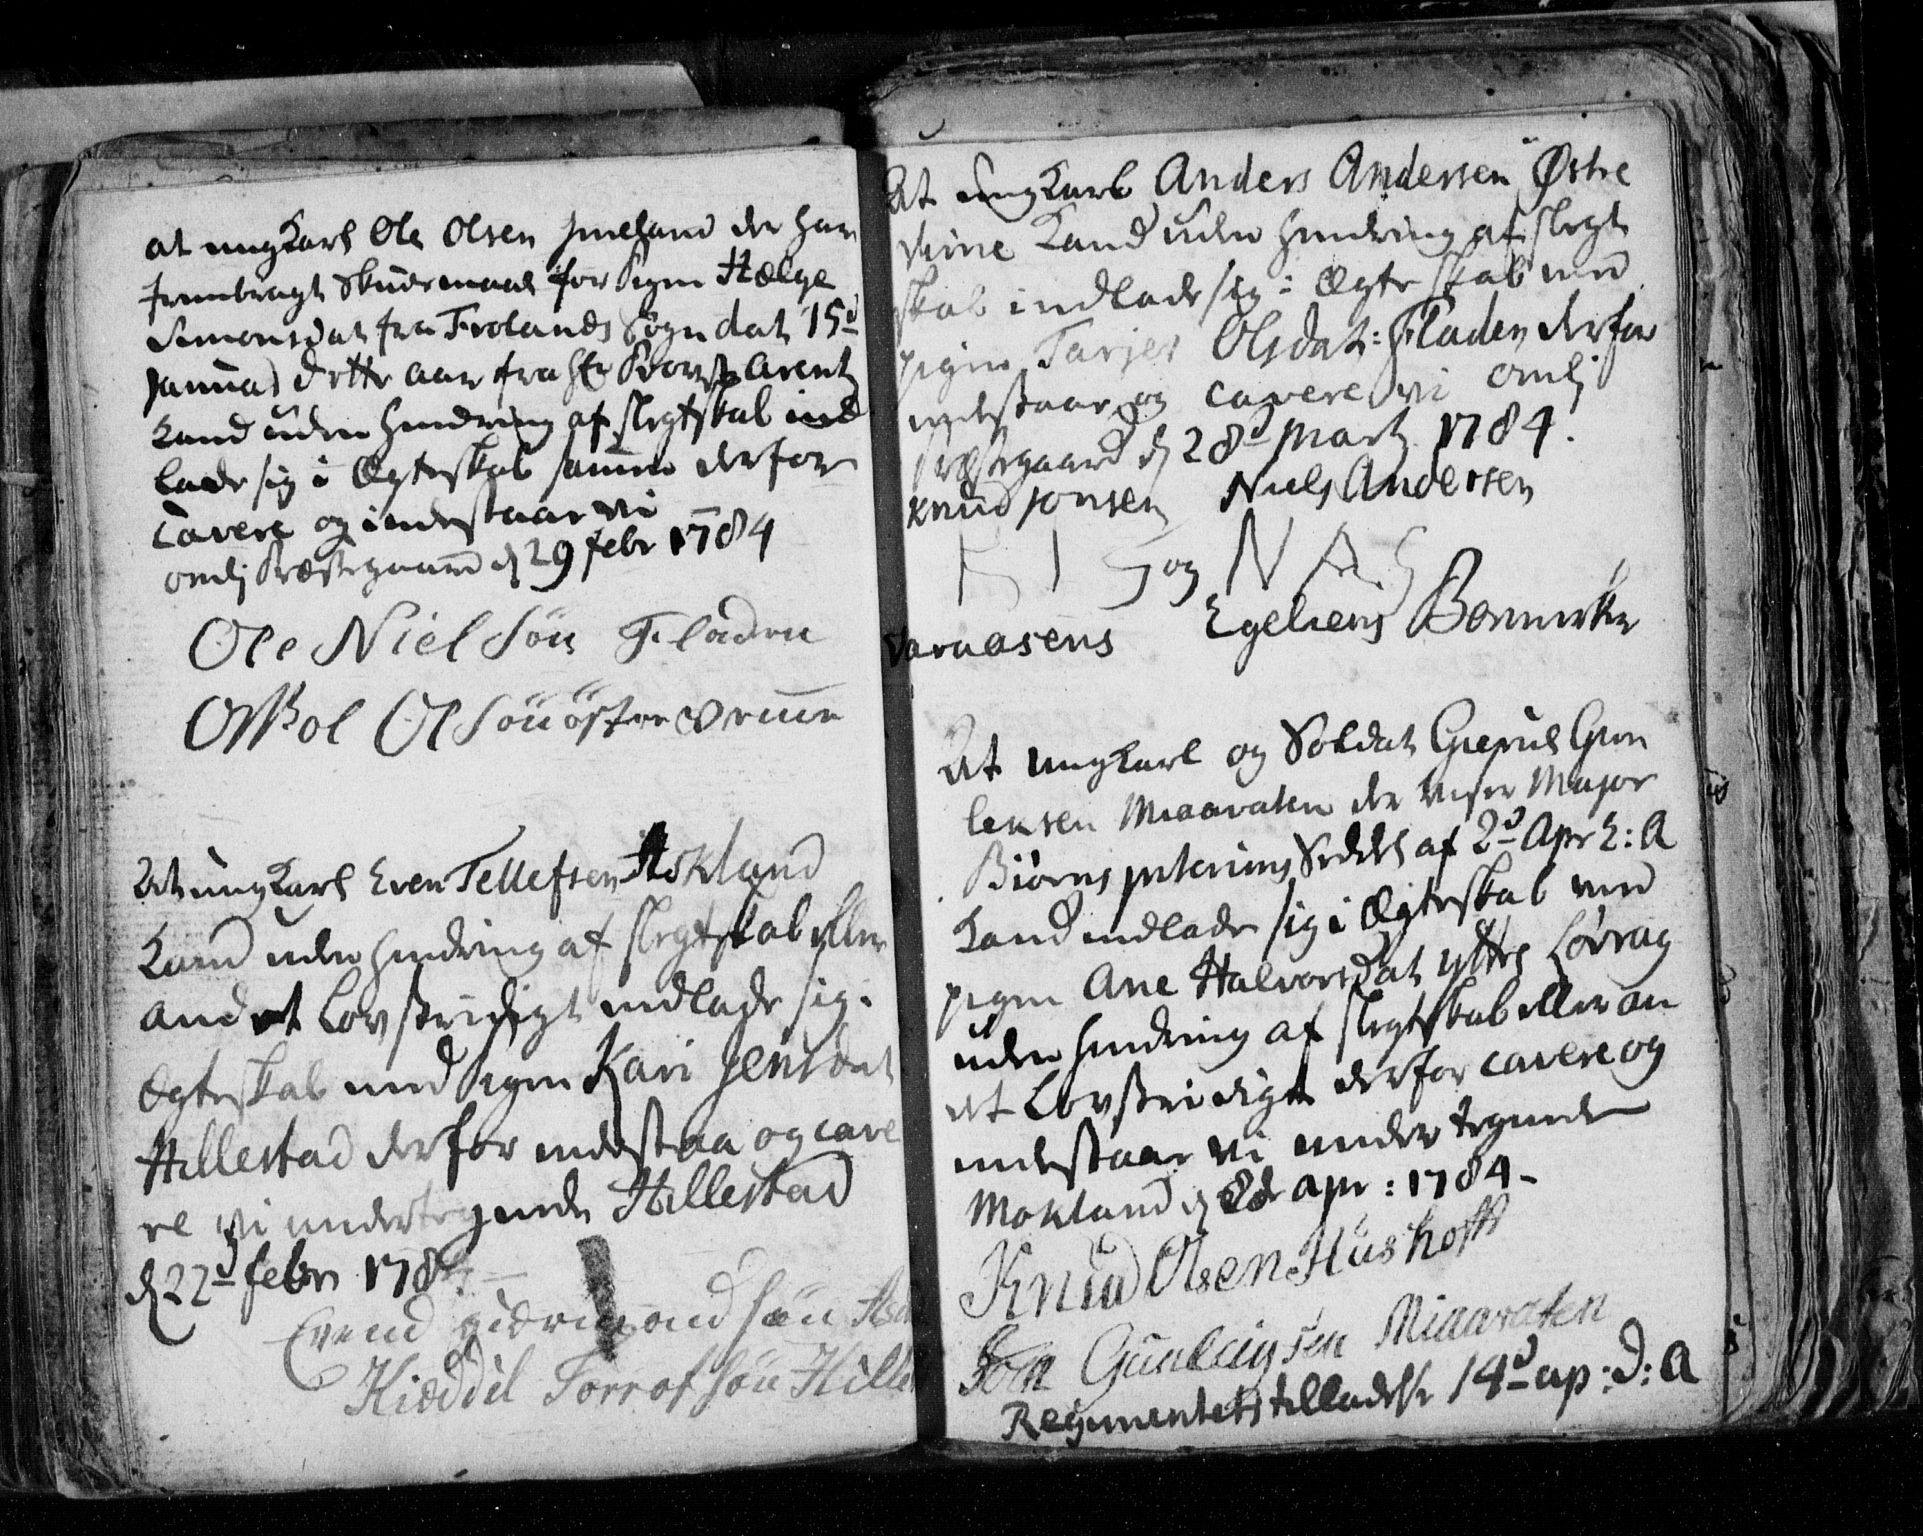 at ungKarl Ole Olsen der har
frembragt Skudsmaal for Pigen Hælge
Simonsdat fra Frolands Sogn dat 15d
Januar dette aar fra Hr Arentz
Kand uden hindring af slegtskab ind
lade sig i Ægteskab sammen derfor
Cavere og indestaar vi
Omlj Præstegaard d 29 febr 1784
Ole Niels Søn Fladen
Ol Søn øster
At ungKarl Even Tellefsen Askland
Kand uden hindring af slegtskab eller
andet Lovstridigt indlade sig i
Ægteskab med Pigen Kari Jensdat
Hillestad derfor indestaa og cave
re vi undertegnede Hillestad
d 22d febr 178
Evend søn
Kieddil Torrof søn Hille
At ungKarl Anders Andersen Østre
Vime Kand uden hindring af slegt
skab indlade sig i Ægteskab med
pigen Tarjer Olsdat: Fladen derfor
indestaar og cavere vi Omlj
Præstegaard d 28d Martz 1784.
Knud Jonsen Niels Andersen
K I S og N A S
Egeliens Bomerker
At ungKarl og Soldat Giepul Gun
leksen Miaavaten der viser Major
Biørns Interims Seddel af 2d Apr h: A
Kand indlade sig i Ægteskab med
pigen Ane Halvorsdat yttre Løvrag
uden hindring af slegtskab eller an
det Lovstridigt derfor cavere og
indestaar vi undertegnede
Mokland d apr: 1784-
Knud Olsen Hushoft
Gunleigsen Miaavaten
Regimentets tilladelse 14d ap: d: A